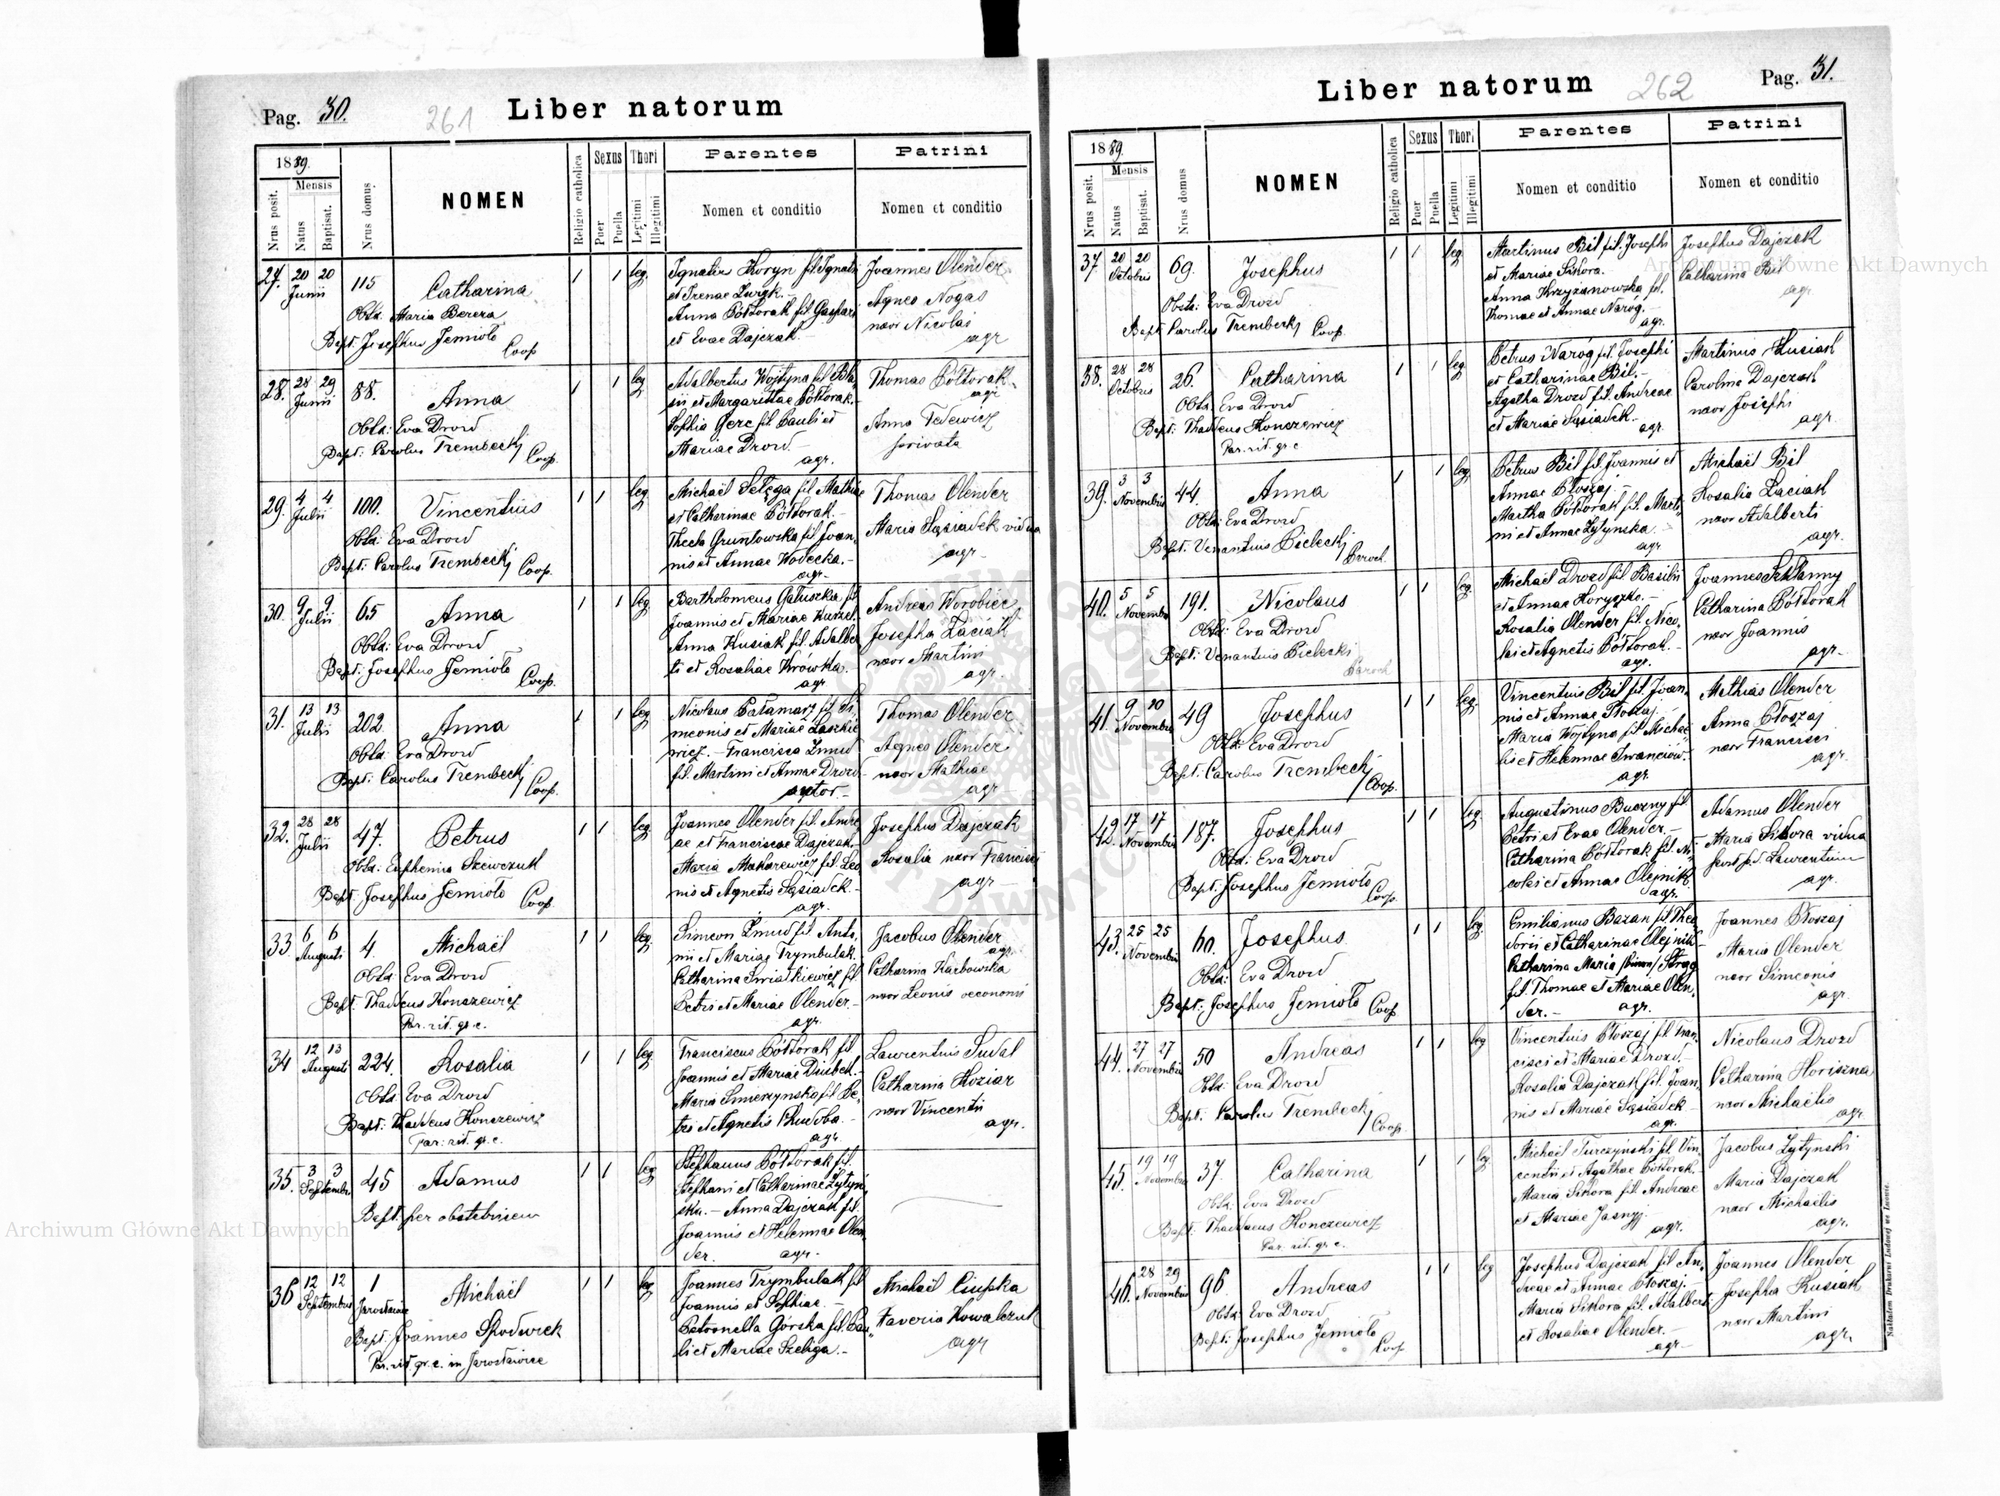 Pag. 30.
261
Liber natorum
1889.
Nrus posit.
Mensis
Natus
Baptisat.
Nrus domus
NOMEN
Religio catholica
Sexus
Puer
Puella
Thori
Legitimi
Illegitimi
Parentes
Nomen et conditio
Patrini
Nomen et conditio
27. 20 20 Junii 115 Catharina 1 1 leg.
Obst: Maria Bereza
Bapt: Josephus Jemioło
Coop
Ignatius Koryn fil. Ignatii
et Irenae
Anna Półtorak fil. Gaspari
et Evae Dajczak
Joannes Olender
Agnes Nogas
uxor Nicolai
agr
28. 28 29 Junii 88. Anna 1 1 leg
Obst: Eva Drozd
Bapt: Carolus Trembecki
Coop.
Adalbertus Wojtyna fil. Bla-
sii et Margarithae Półtorak.-
Sophia Gerc fil. Pauli et
Mariae Drozd.
agr.
Thomas Półtorak
agr
Anna
privata
29. 4 4 Julii 100. Vincentius 1 1 leg.
Obst: Eva Drozd
Bapt: Carolus Trembecki Coop.
Michaël fil. Mathiae
et Catharinae Półtorak.-
Thecla Gruntowska fil. Joan-
nis et Annae Wodecka.-
agr.
Thomas Olender
Maria Sąsiadek vidua
agr-
30. 9 9 Julii 65 Anna 1 1 leg
Obst: Eva Drozd
Bapt: Josephus Jemioło
Coop.
Bartholomeus Gałuszka fil.
Joannis et Mariae
Anna Kusiak fil. Adalber-
ti et Rosaliae Krówka.
agr
Andreas Worobiec
Josepha Łaciak
uxor Martini
agr.
31. 13 13 Julii 202 Anna 1 1 leg
Obst: Eva Drozd
Bapt: Carolus Trembecki
Coop.
Nicolaus Patamarz fil. Si-
meonis et Mariae Laskie-
wicz.- Francisca Żmud
fil. Martini et Annae Drozd
Thomas Olender
Agnes Olender
uxor Mathiae
agr
32. 28 28 Julii 47. Petrus 1 1 leg.
Obst: Euphemia Szewczuk
Bapt: Josephus Jemioło Coop.
Joannes Olender fil. Andre-
ae et Franciscae Dajczak.
Maria Makarewicz fil. Leo-
nis et Agnetis Sąsiadek.-
agr.
Josephus Dajczak
Rosalia uxor Francisci
agr-
33 6 6 Augusti 4 Michaël 1 1 leg.
Obst: Eva Drozd
Bapt: Thaddeus Konczewicz
Par. rit. gr. c.
Simeon Żmud fil. Anto-
nii et Mariae Trymbulak.
Catharina Świątkiewicz fil.
Petri et Mariae Olender.-
agr.
Jacobus Olender
agr.
Catharina Karbowska
uxor Leonis oeconomi
34 12 13 Augusti 224. Rosalia 1 1 leg.
Obst: Eva Drozd
Bapt: Thaddeus Konczewicz
Par: rit. gr. c.
Franciscus Półtorak fil
Joannis et Mariae
Maria fil. Pe-
tri et Agnetis Chudoba.-
agr.
Laurentius Sudał
Catharina Koziar
uxor Vincentii
agr.
35. 3 3 Septembr. 45 Adamus 1 1 leg
Bapt. per obstetricem
Stephanus Półtorak fil.
Stephani et Catharinae Żytyń-
ska.- Anna Dajczak fil.
Joannis et Helennae Olen-
der. agr.
36 12 12 Septembris 1 Jarosławice Michaël 1 1 leg
Bapt: Joannes Spodwrek
Par. rit. gr. c. in Jarosławice
Joannes Trymbulak fil
Joannis et Sophiae.-
Petronella Górska fil. Pau-
li et Mariae Szeliga.-
Michaël Ciupka
Xaveria Kowalczuk
agr
Pag. 31.
262
Liber natorum
1889.
Nrus posit.
Mensis
Natus
Baptisat.
Nrus domus
NOMEN
Religio catholica
Sexus
Puer
Puella
Thori
Legitimi
Illegitimi
Parentes
Nomen et conditio
Patrini
Nomen et conditio
37. 20 20 Octobris 69. Josephus 1 1 leg.
Obsta: Eva Drozd
Bapt: Carolus Trembecki Coop.
Martinus Bil fil. Josephi
et Mariae Sikora.
Anna Krzyzanowska fil.
Thomae et Annae Naróg.-
agr.
Josephus Dajczak
Catharina Bil
agr
38. 28 28 Octobris 26. Catharina 1 1 leg
Obst: Eva Drozd
Bapt: Thaddeus Konczewicz
Par. rit. gr. c
Petrus Naróg fil. Josephi
et Catharinae Bil.-
Agatha Drozd fil. Andreae
et Mariae Sąsiadek.-
agr.
Martinus Kusiak
Carolina Dajczak
uxor Josephi
agr.
39. 3 3 Novembris 44. Anna 1 1 leg.
Obst: Eva Drozd
Bapt: Venantius Bielecki
Paroch.
Petrus Bil fil. Joannis et
Annae Płoszaj.-
Martha Półtorak fil. Marti-
ni et Annae Żytynska.-
agr
Michaël Bil
Rosalia Łaciak
uxor Adalberti
agr.
40. 5 5 Novembr 191. Nicolaus 1 1 leg.
Obst: Eva Drozd
Bapt: Venantius Bielecki
Paroch
Michaël Drozd fil Basilii
et Annae Koryzko.-
Rosalia Olender fil. Nico-
lai et Agnetis Półtorak.-
agr.
Joannes Szklanny
Catharina Półtorak
uxor Joannis
agr.-
41. 9 10 Novembris 49 Josephus 1 1 leg.
Obst: Eva Drozd
Bapt: Carolus Trembecki
Coop.
Vincentius Bil fil. Joan-
nis et Annae Płoszaj.-
Maria Wojtyna fil. Michaë-
lis et Helennae Iwanciów.-
agr.
Mathias Olender
Anna Płoszaj
uxor Francisci
agr.
42. 17 17 Novembris 187. Josephus 1 1 leg.
Obst: Eva Drozd
Bapt: Josephus Jemioło
Coop.
Augustinus Buczny fil
Petri et Evae Olender.-
Catharina Półtorak fil. Ni-
colai et Annae Olejnik.
agr.
Adamus Olender
Maria Sikora vidua
post p.d. Laurentium
agr.
43. 25 25 Novembris 60. Josephus 1 1 leg.
Obst: Eva Drozd
Bapt: Josephus Jemioło Coop
Emilianus Bazan fil Theo-
dorii et Catharinae Olejnik.-
Catharina Maria
fil. Thomae et Mariae Olen-
der.- agr.
Joannes Płoszaj
Maria Olender
uxor Simeonis
agr.
44. 27 27 Novembris 50 Andreas 1 1 leg
Obst: Eva Drozd
Bapt: Carolus Trembecki
Coop.
Vincentius Płoszaj fil. Fran-
cisci et Mariae Drozd.-
Rosalia Dajczak fil. Joan-
nis et Mariae Sąsiadek.-
agr.
Nicolaus Drozd
Catharina Horiszna
uxor Michaëlis
agr.
45. 19 19 Novembris 37. Catharina 1 1 leg
Obst: Eva Drozd
Bapt: Thaddaeus Konczewicz
Par. rit. gr. c.
Michaël Turczynski fil. Vin-
centii et Agathae Półtorak.
Maria Sikora fil. Andreae
et Mariae Jasnyj.
agr.
Jacobus Żytynski
Maria Dajczak
uxor Michaëlis
agr.
46. 28 29 Novembris 96. Andreas 1 1 leg
Obst: Eva Drozd
Bapt: Josephus Jemioło
Coop
Josephus Dajczak fil An-
dreae et Annae Płoszaj.-
Maria Sikora fil. Adalberti
et Rosaliae Olender.-
agr-
Joannes Olender
Josepha Kusiak
uxor Martini
agr.
Nakładem Drukarni Ludowej we Lwowie.
Archiwum Główne Akt Dawnych
Archiwum Główne Akt Dawnych